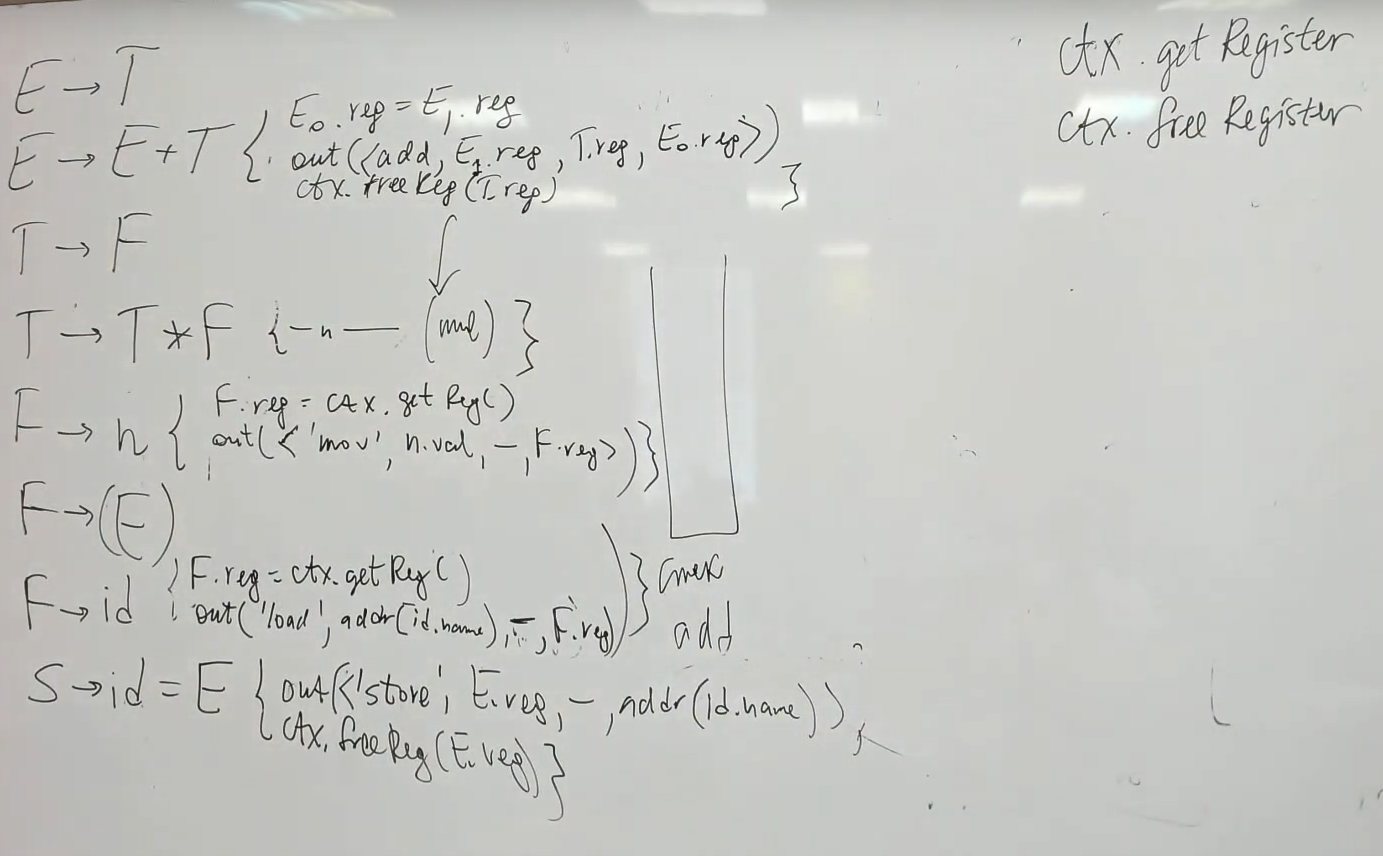 E → T
E → E + T { E₀.reg = E₁.reg
out(<add, E₁.reg, T.reg, E₀.reg>)
ctx.freeReg(T.reg) }
T → F
T → T * F { - " — (mul) }
F → n { F.reg = ctx.getReg()
out(<'mov', n.val, -, F.reg>) }
F → (E)
F → id { F.reg = ctx.getReg()
out('load', addr(id.name), -, F.reg) }
add
S → id = E { out(<'store', E.reg, -, addr(id.name)>,
ctx.freeReg(E.reg) }
ctx.getRegister
ctx.freeRegister